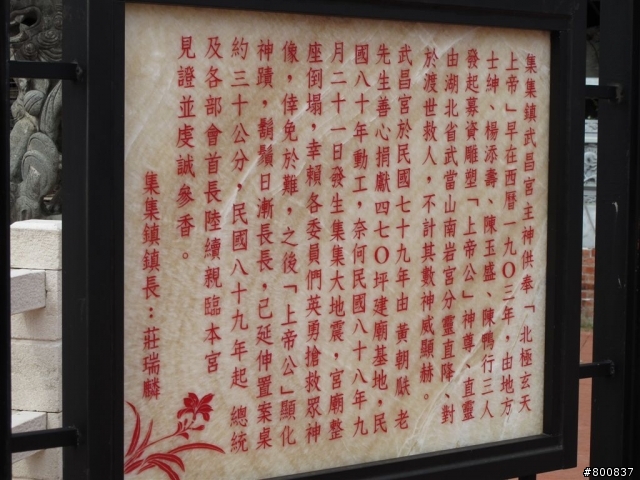 集集鎮武昌宮主神供奉「北極玄天
上帝」早在西曆一九〇三年，由地方
士紳、楊添壽、陳玉盛、陳鴨行三人
發起募資雕塑「上帝公」神尊、直靈
由湖北省武當山南岩宮分靈直降、對
於渡世救人，不計其數神威顯赫。
武昌宮於民國七十九年由 黃朝 老
先生善心捐獻四七〇坪建廟基地，民
國八十年動工，奈何民國八十八年九
月二十一日發生集集大地震，宮廟整
座倒塌，幸賴各委員們英勇搶救眾神
像，倖免於難，之後「上帝公」顯化
神蹟，鬍鬚日漸長長，已延伸置案桌
約三十公分，民國八十九年起 總統
及各部會首長陸續親臨本宮
見證並虔誠參香。
集集鎮鎮長：莊瑞麟
#800837